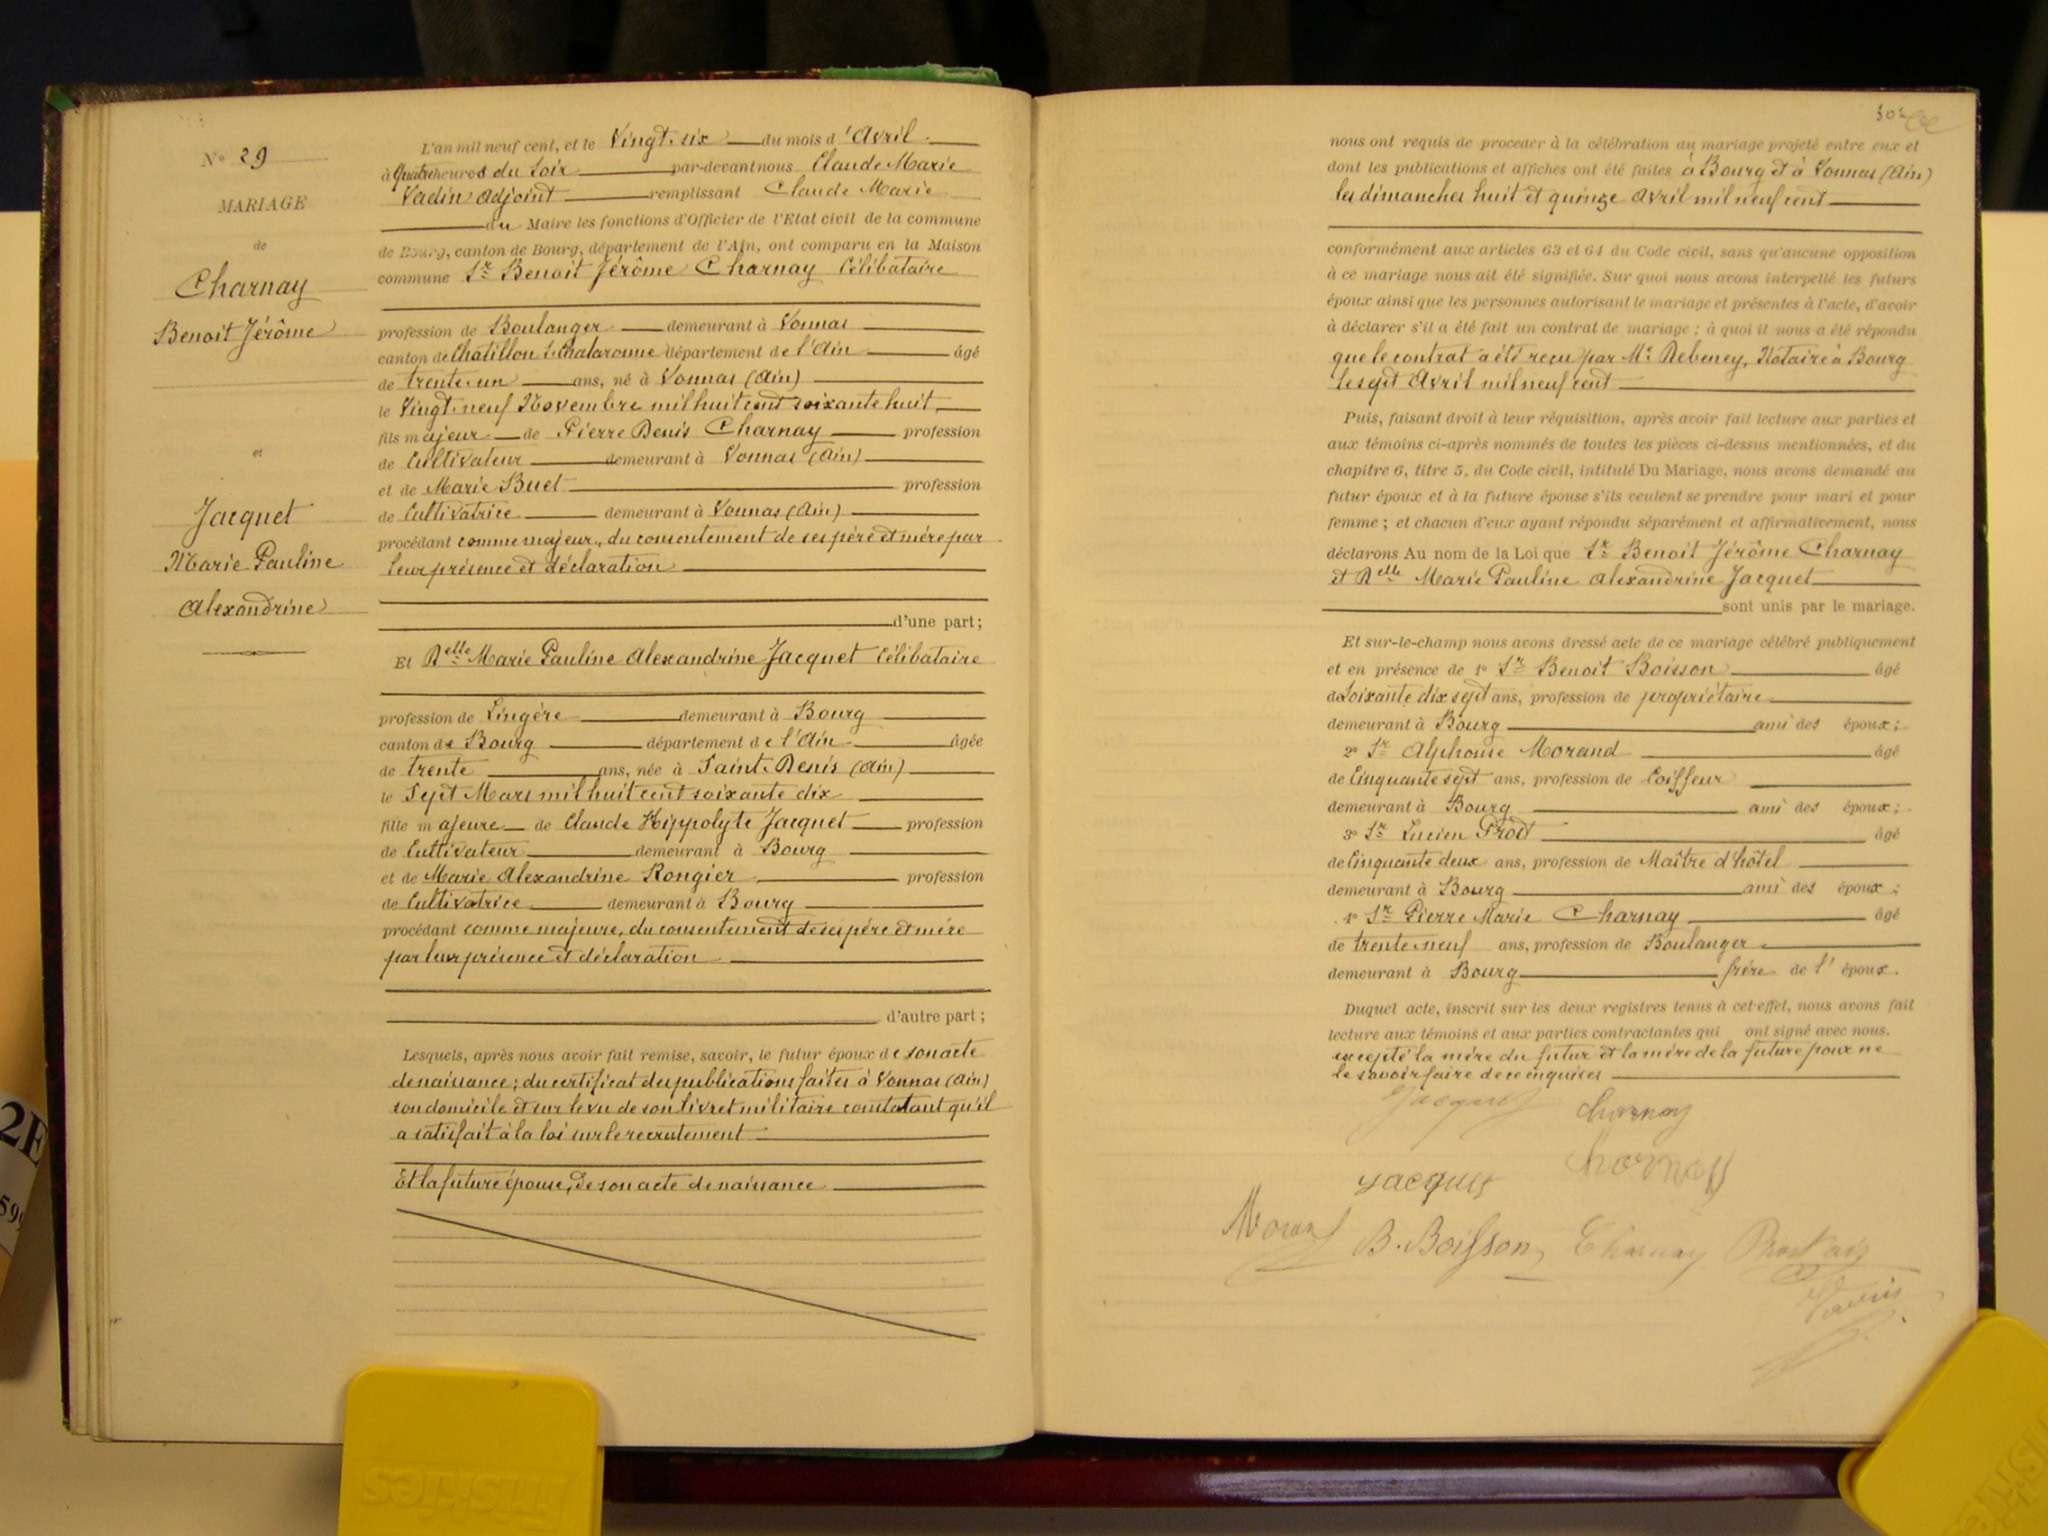 N° 29
MARIAGE
de
Charnay
Benoit Jérôme
et
Jacquet
Marie Pauline
Alexandrine
L'an mil neuf cent, et le Vingt-six du mois d'Avril
à Quatre heures du soir par-devant nous Claude Marie
Vadin adjoint remplissant Claude Marie
du Maire les fonctions d'Officier de l'Etat civil de la commune
de Bourg, canton de Bourg, département de l'Ain, ont comparu en la Maison
commune Sr Benoit Jérôme Charnay Célibataire
profession de Boulanger demeurant à Vonnas
canton de Chatillon s. Chalaronne département de l'Ain âgé
de trente-un ans, né à Vonnas (Ain)
le Vingt-neuf Novembre mil huit cent soixante huit
fils majeur de Pierre Denis Charnay profession
de Cultivateur demeurant à Vonnas (Ain)
et de Marie Buet profession
de Cultivatrice demeurant à Vonnas (Ain)
procédant comme majeur, du consentement de ses père et mère par
leur présence et déclaration
d'une part;
Et Delle Marie Pauline Alexandrine Jacquet Célibataire
profession de Lingère demeurant à Bourg
canton de Bourg département de l'Ain âgée
de trente ans, née à Saint-Denis (Ain)
le Sept Mars mil huit cent soixante dix
fille majeure de Claude Hippolyte Jacquet profession
de Cultivateur demeurant à Bourg
et de Marie Alexandrine Rongier profession
de Cultivatrice demeurant à Bourg
procédant comme majeure, du consentement de ses père et mère
par leur présence et déclaration
d'autre part;
Lesquels, après nous avoir fait remise, savoir, le futur époux de son acte
de naissance; du certificat des publications faites à Vonnas (Ain)
son domicile et sur le vu de son livret militaire constatant qu'il
a satisfait à la loi sur le recrutement
Et la future épouse, de son acte de naissance
nous ont requis de procéder à la célébration du mariage projeté entre eux et
dont les publications et affiches ont été faites à Bourg et à Vonnas (Ain)
les dimanches huit et quinze Avril mil neuf cent
conformément aux articles 63 et 64 du Code civil, sans qu'aucune opposition
à ce mariage nous ait été signifiée. Sur quoi nous avons interpellé les futurs
époux ainsi que les personnes autorisant le mariage et présentes à l'acte, d'avoir
à déclarer s'il a été fait un contrat de mariage; à quoi il nous a été répondu
que le contrat a été reçu par Me Debeney, Notaire à Bourg
le sept Avril mil neuf cent
Puis, faisant droit à leur réquisition, après avoir fait lecture aux parties et
aux témoins ci-après nommés de toutes les pièces ci-dessus mentionnées, et du
chapitre 6, titre 5, du Code civil, intitulé Du Mariage, nous avons demandé au
futur époux et à la future épouse s'ils veulent se prendre pour mari et pour
femme; et chacun d'eux ayant répondu séparément et affirmativement, nous
déclarons Au nom de la Loi que Sr Benoit Jérôme Charnay
et Delle Marie Pauline Alexandrine Jacquet
sont unis par le mariage.
Et sur-le-champ nous avons dressé acte de ce mariage célébré publiquement
et en présence de 1° Sr Benoit Boisson âgé
de Soixante dix sept ans, profession de propriétaire
demeurant à Bourg ami des époux;
2° Sr Alphonse Morand âgé
de Cinquante sept ans, profession de Coiffeur
demeurant à Bourg ami des époux;
3° Sr Lucien Prost âgé
de Cinquante deux ans, profession de Maître d'hôtel
demeurant à Bourg ami des époux;
4° Sr Pierre Marie Charnay âgé
de trente-neuf ans, profession de Boulanger
demeurant à Bourg frère de l'époux.
Duquel acte, inscrit sur les deux registres tenus à cet effet, nous avons fait
lecture aux témoins et aux parties contractantes qui ont signé avec nous.
excepté la mère du futur et la mère de la future pour ne
le savoir faire de ce enquises
Jacquet Charnay
Jacquet Charnay
Moran B. Boisson Charnay
Vadin
2E